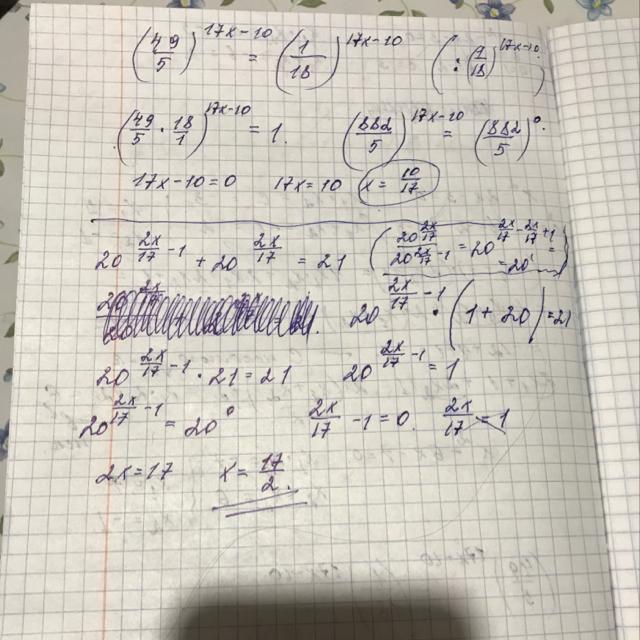 (49/5)^(17x-10) = (1/18)^(17x-10) (: (1/18)^(17x-10))
(49/5 · 18/1)^(17x-10) = 1. (882/5)^(17x-10) = (882/5)^0.
17x-10=0 17x=10 x= 10/17
20^(2x/17 -1) + 20^(2x/17) = 21 (20^(2x/17) / 20^(2x/17 -1) = 20^(2x/17 - 2x/17 +1) = = 20^1)
20^(2x/17 -1) · (1+20) = 21
20^(2x/17 -1) · 21 = 21 20^(2x/17 -1) = 1
20^(2x/17 -1) = 20^0 2x/17 -1 = 0. 2x/17 = 1
2x=17 x= 17/2.